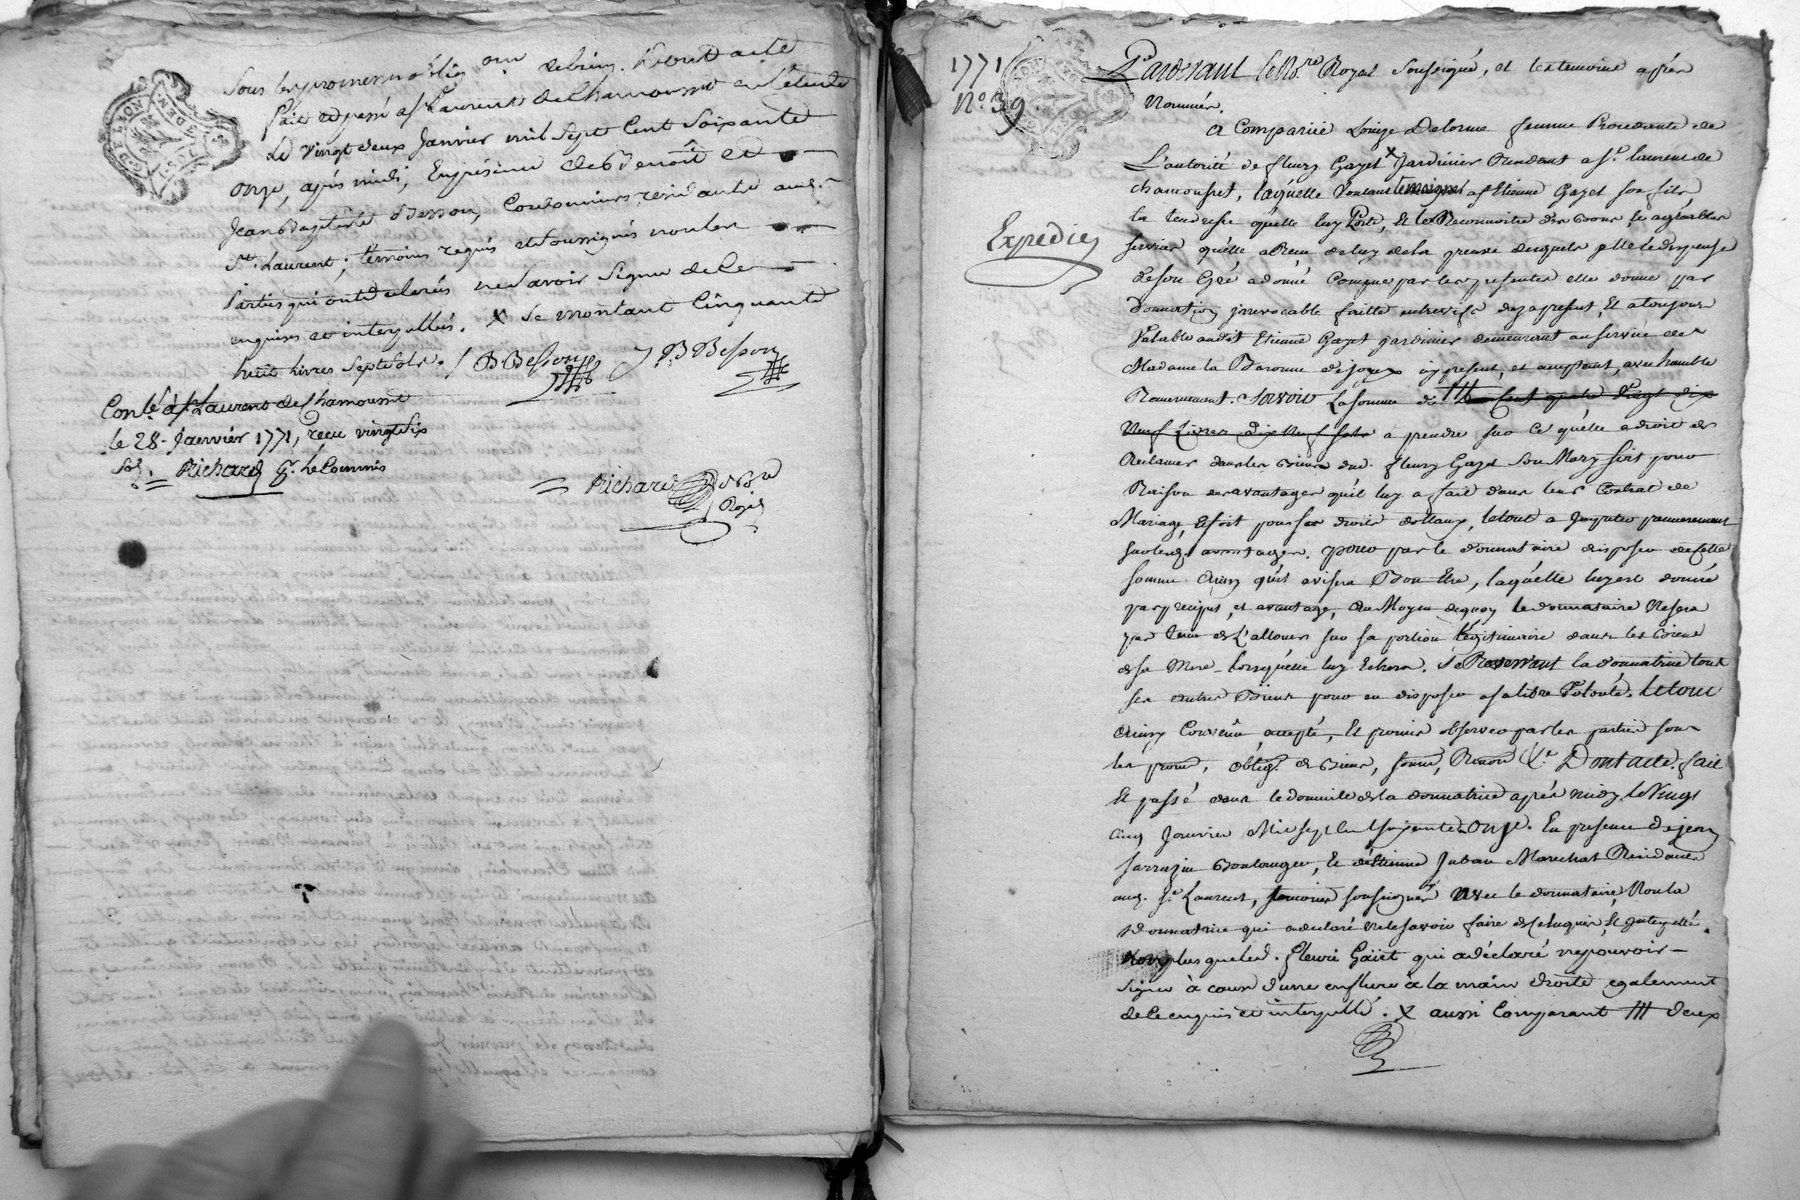 Sous les promesses oblig.on de biens. Dont acte
fait et passé a St Laurent de Chamousset en l'étude
Le vingt deux Janvier mil Sept Cent Soixante
onze, après midi, En présence de Benoît et
Jean Baptiste Besson, Cordonniers residants aud.
St. Laurent, temoins requis et Soussignés non les
parties qui ont declarés ne Savoir Signer de ce
enquises et interpellées. X Se montant Cinquante
huit livres Sept Sols. / B Besson / J B Besson
Conlé à St Laurent de Chamousset
le 28. Janvier 1771, reçu vingt Six
Sols. Richard Gr. le Commis
Richard Nore
Royal
1771
N.o 39
Expediez
Pardevant le No.re Royal Soussigné, et les temoins après
Nommés
A Comparüe Louize Delorme femme Procedante de
L'autorité de fleury Gazet X Jardinier Residant a St. laurent de
chamousset, laquelle voulant temoigner a Etienne Gazet son fils
la tendresse quelle luy Porte, Et le Reconnoitre des bons & agréables
services quelle a Reçu de luy de la preuve desquels elle le dispense
de son Gré a donné Comme par les presentes elle donne par
Donnation irrevocable faitte entre vifs des a present, Et a toujours
Valable audit Etienne Gazet jardinier demeurant au service de
Madame la Baronne de joyeux icy present, et acceptant, avec humble
Remerciement. Savoir La somme de ttt Cent quatre Vingt dix
Neuf Livres Dix Neuf sols a prendre sur Ce quelle a droit de
Reclamer dans les Biens dud. fleury Gazet Son Mary soit pour
Raison des avantages quil luy a fait dans leur Contrat de
Mariage, Et soit pour ses droits dottaux, le tout a Imputer premierement
sur lesd. avantages. pour par le donnataire disposer de cette
somme Ainsy quil avisera Bon Etre, laquelle luy est donné
par preciput, et avantage, Au Moyen de quoy le donnataire Ne sera
pas tenu de L'allouer sur sa portion légitimaire dans les biens
de sa Mere lorsquelle luy Echera. Se Reservant la donnatrice tout
ses autres Biens pour en disposer a sa libre Volonté. le tout
Ainsy Convenu, accepté, Et promis observer par les parties sous
les prom, oblig.n de Biens, soum, Renon & Dont acte. fait
Et passé dans le domicile de la donnatrice après midy le Vingt
Cinq Janvier Mil sept Cent soixante Onze. En presence de jean
Sarrazin Boulanger, Et d'Etienne Juban Marechal Residants
aud. St. Laurent, temoins soussignés avec le donnataire, Non la
donnatrice qui a declaré ne le savoir faire de Ce Enquise, Et Interpellé
Non plus que led. fleuri Gaiet qui a déclaré ne pouvoir
Signer à cause d'une enflure à la main droite egalement
de ce enquis et interpellé. X aussi Comparant ttt deux